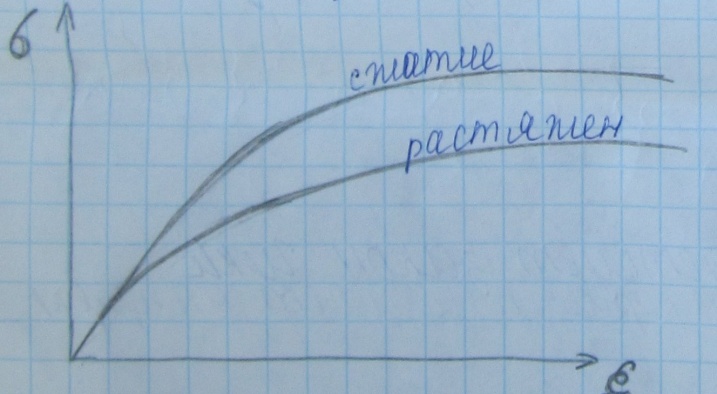 σ
сжатие
растяжен
ε